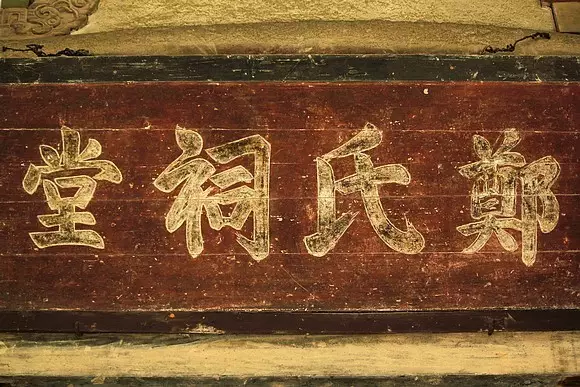 鄭氏祠堂